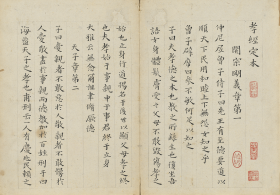 孝經定本
開宗明義章第一
仲尼居曾子侍子曰先王有至德要道以
順天下民用和睦上下無怨女知之乎
曾子辟席曰參不敏何足以知之
子曰夫孝德之本也教之所繇生也復坐吾
語女身體髮膚受之父母不敢毀傷孝之
始也立身行道揚名于後世以顯父母孝之終
也夫孝始于事親中于事君終于立身
大雅云無念爾祖聿脩厥德
天子章第二
子曰愛親者不敢惡於人敬親者不敢慢於
人愛敬盡於事親而德教加於百姓刑于四
海蓋天子之孝也甫刑云一人有慶兆民賴之